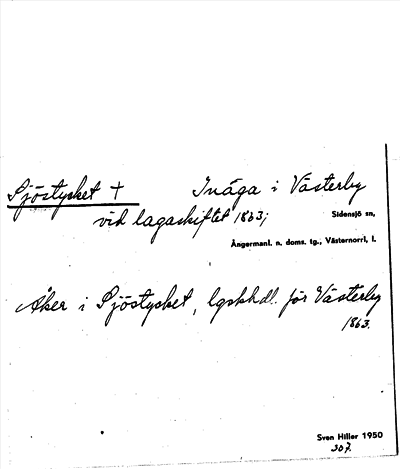 Sjöstycket + Inäga i Västerby
vid lagaskiftet 1863;
Sidensjö sn,
Ångermanl. n. doms. tg., Västernorrl, l.
Åker i Sjöstycket, lgskhdl. för Västerby
1863.
Sven Hiller 1950
307.